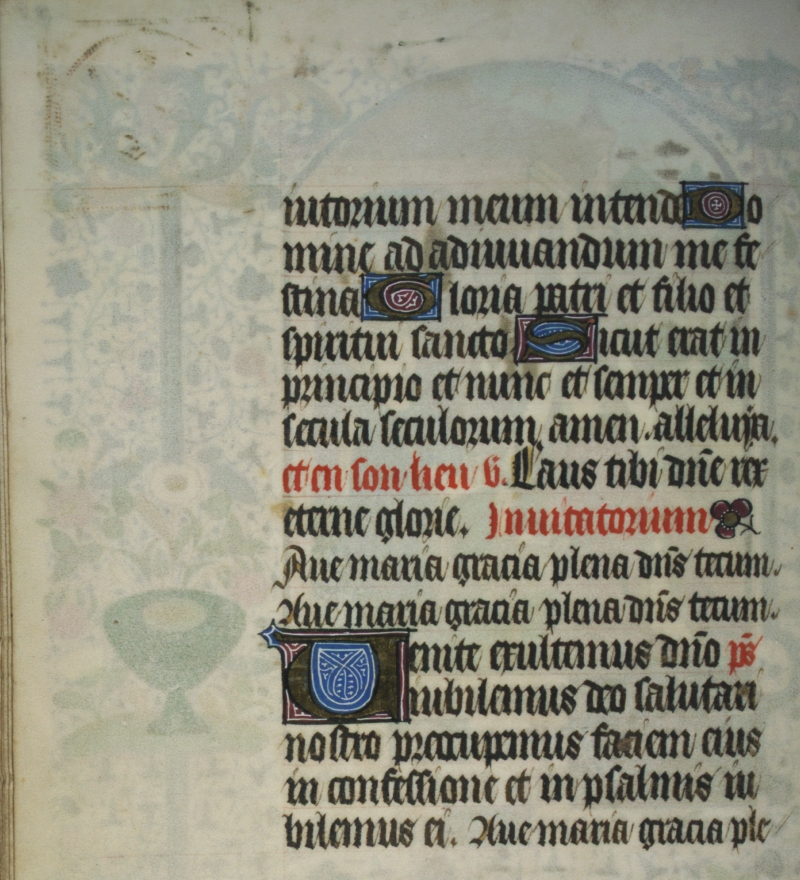 iutorium meum intende Do
mine ad adiuuandum me fe
stina Gloria patri et filio et
spiritui sancto Sicut erat in
principio et nunc et semper et in
secula seculorum, amen. alleluya.
et en son lieu G. Laus tibi dñe rex
eterne glorie. Inuitatorium
Aue maria gracia plena dñs tecum.
Aue maria gracia plena dñs tecum.
Uenite exultemus dño ps̃
iubilemus deo salutari
nostro preocupemus faciem eius
in confessione et in psalmis iu
bilemus ei. Aue maria gracia ple